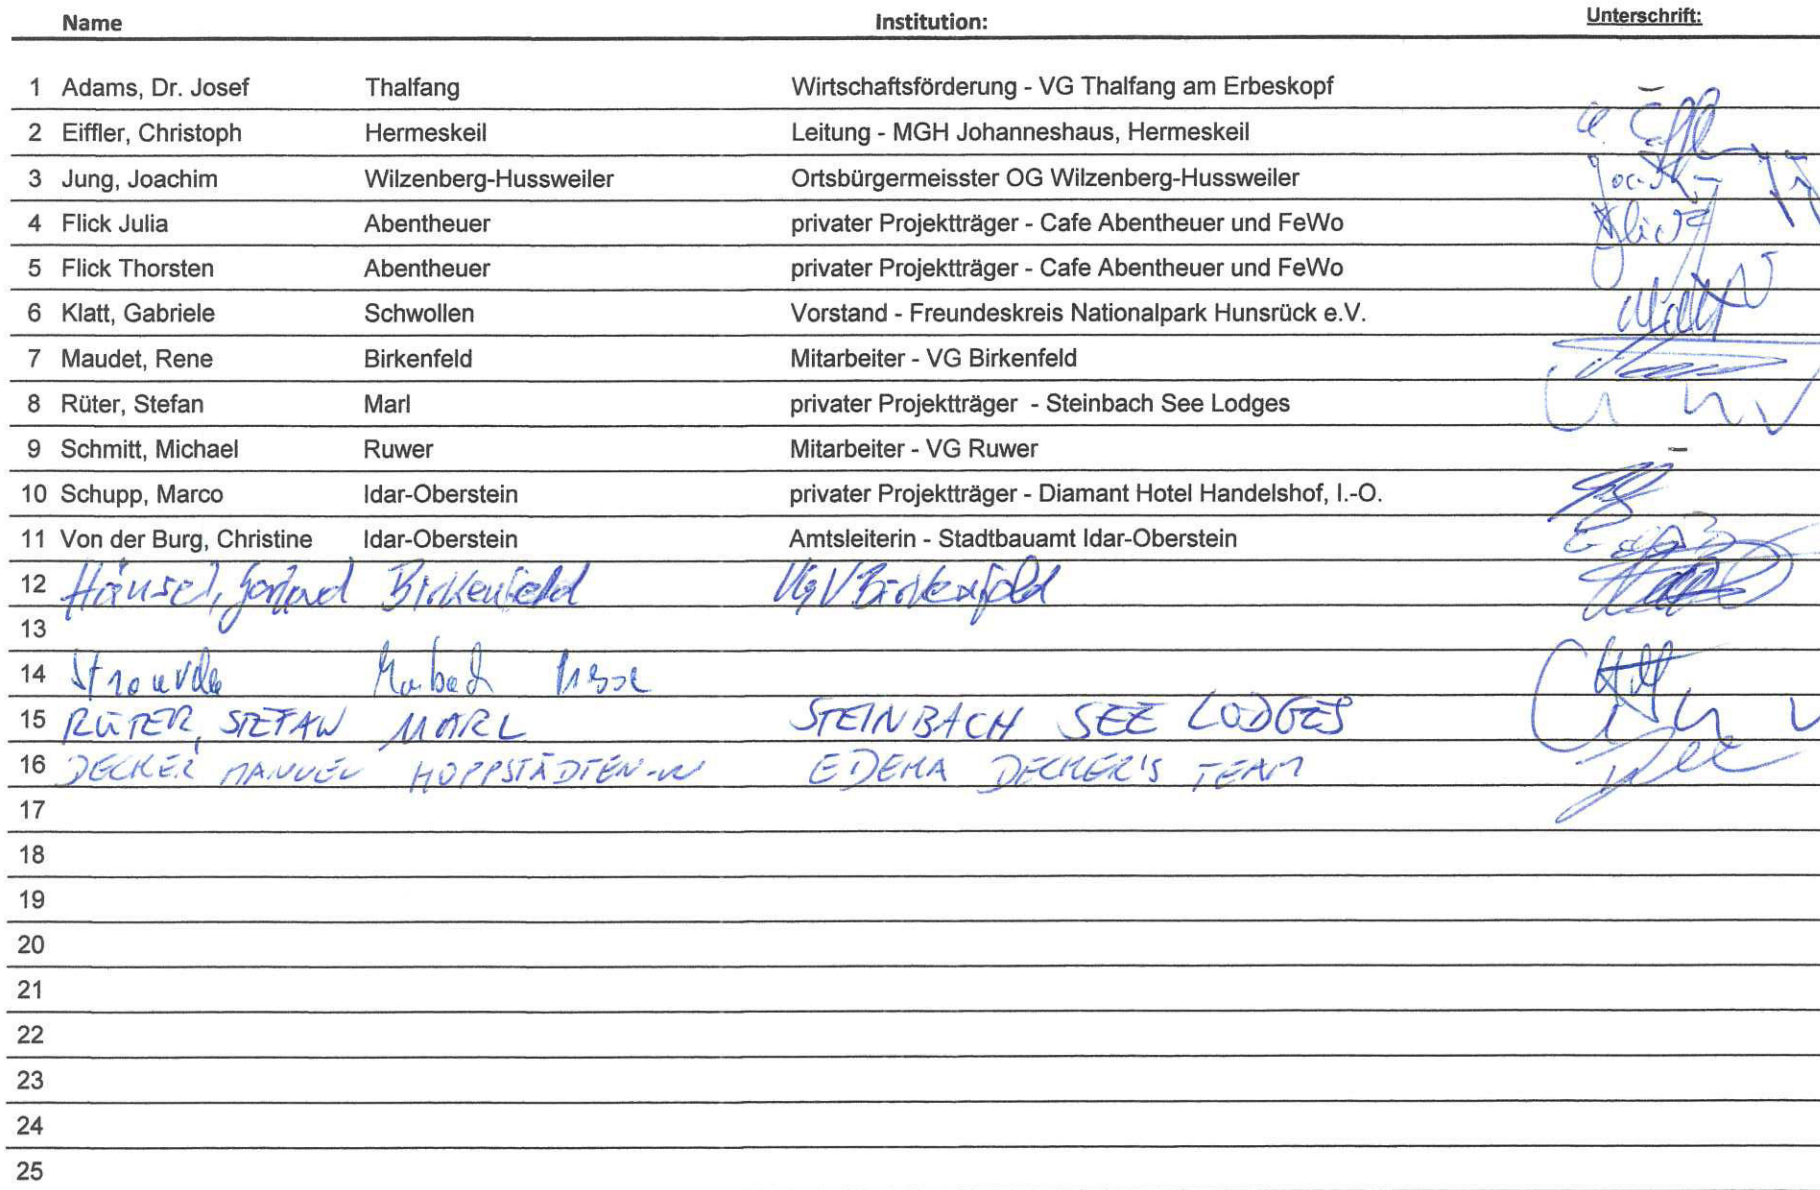 Name Institution: Unterschrift:
1 Adams, Dr. Josef Thalfang Wirtschaftsförderung - VG Thalfang am Erbeskopf -
2 Eiffler, Christoph Hermeskeil Leitung - MGH Johanneshaus, Hermeskeil
3 Jung, Joachim Wilzenberg-Hussweiler Ortsbürgermeisster OG Wilzenberg-Hussweiler
4 Flick Julia Abentheuer privater Projektträger - Cafe Abentheuer und FeWo
5 Flick Thorsten Abentheuer privater Projektträger - Cafe Abentheuer und FeWo
6 Klatt, Gabriele Schwollen Vorstand - Freundeskreis Nationalpark Hunsrück e.V.
7 Maudet, Rene Birkenfeld Mitarbeiter - VG Birkenfeld
8 Rüter, Stefan Marl privater Projektträger - Steinbach See Lodges
9 Schmitt, Michael Ruwer Mitarbeiter - VG Ruwer -
10 Schupp, Marco Idar-Oberstein privater Projektträger - Diamant Hotel Handelshof, I.-O.
11 Von der Burg, Christine Idar-Oberstein Amtsleiterin - Stadtbauamt Idar-Oberstein
12 Hänsel, Birkenfeld VGV Birkenfeld
13
14
15 RÜTER, STEFAN MARL STEINBACH SEE LODGES
16 DECKER MANUEL HOPPSTÄDTEN-W EDEKA DECKER'S TEAM
17
18
19
20
21
22
23
24
25